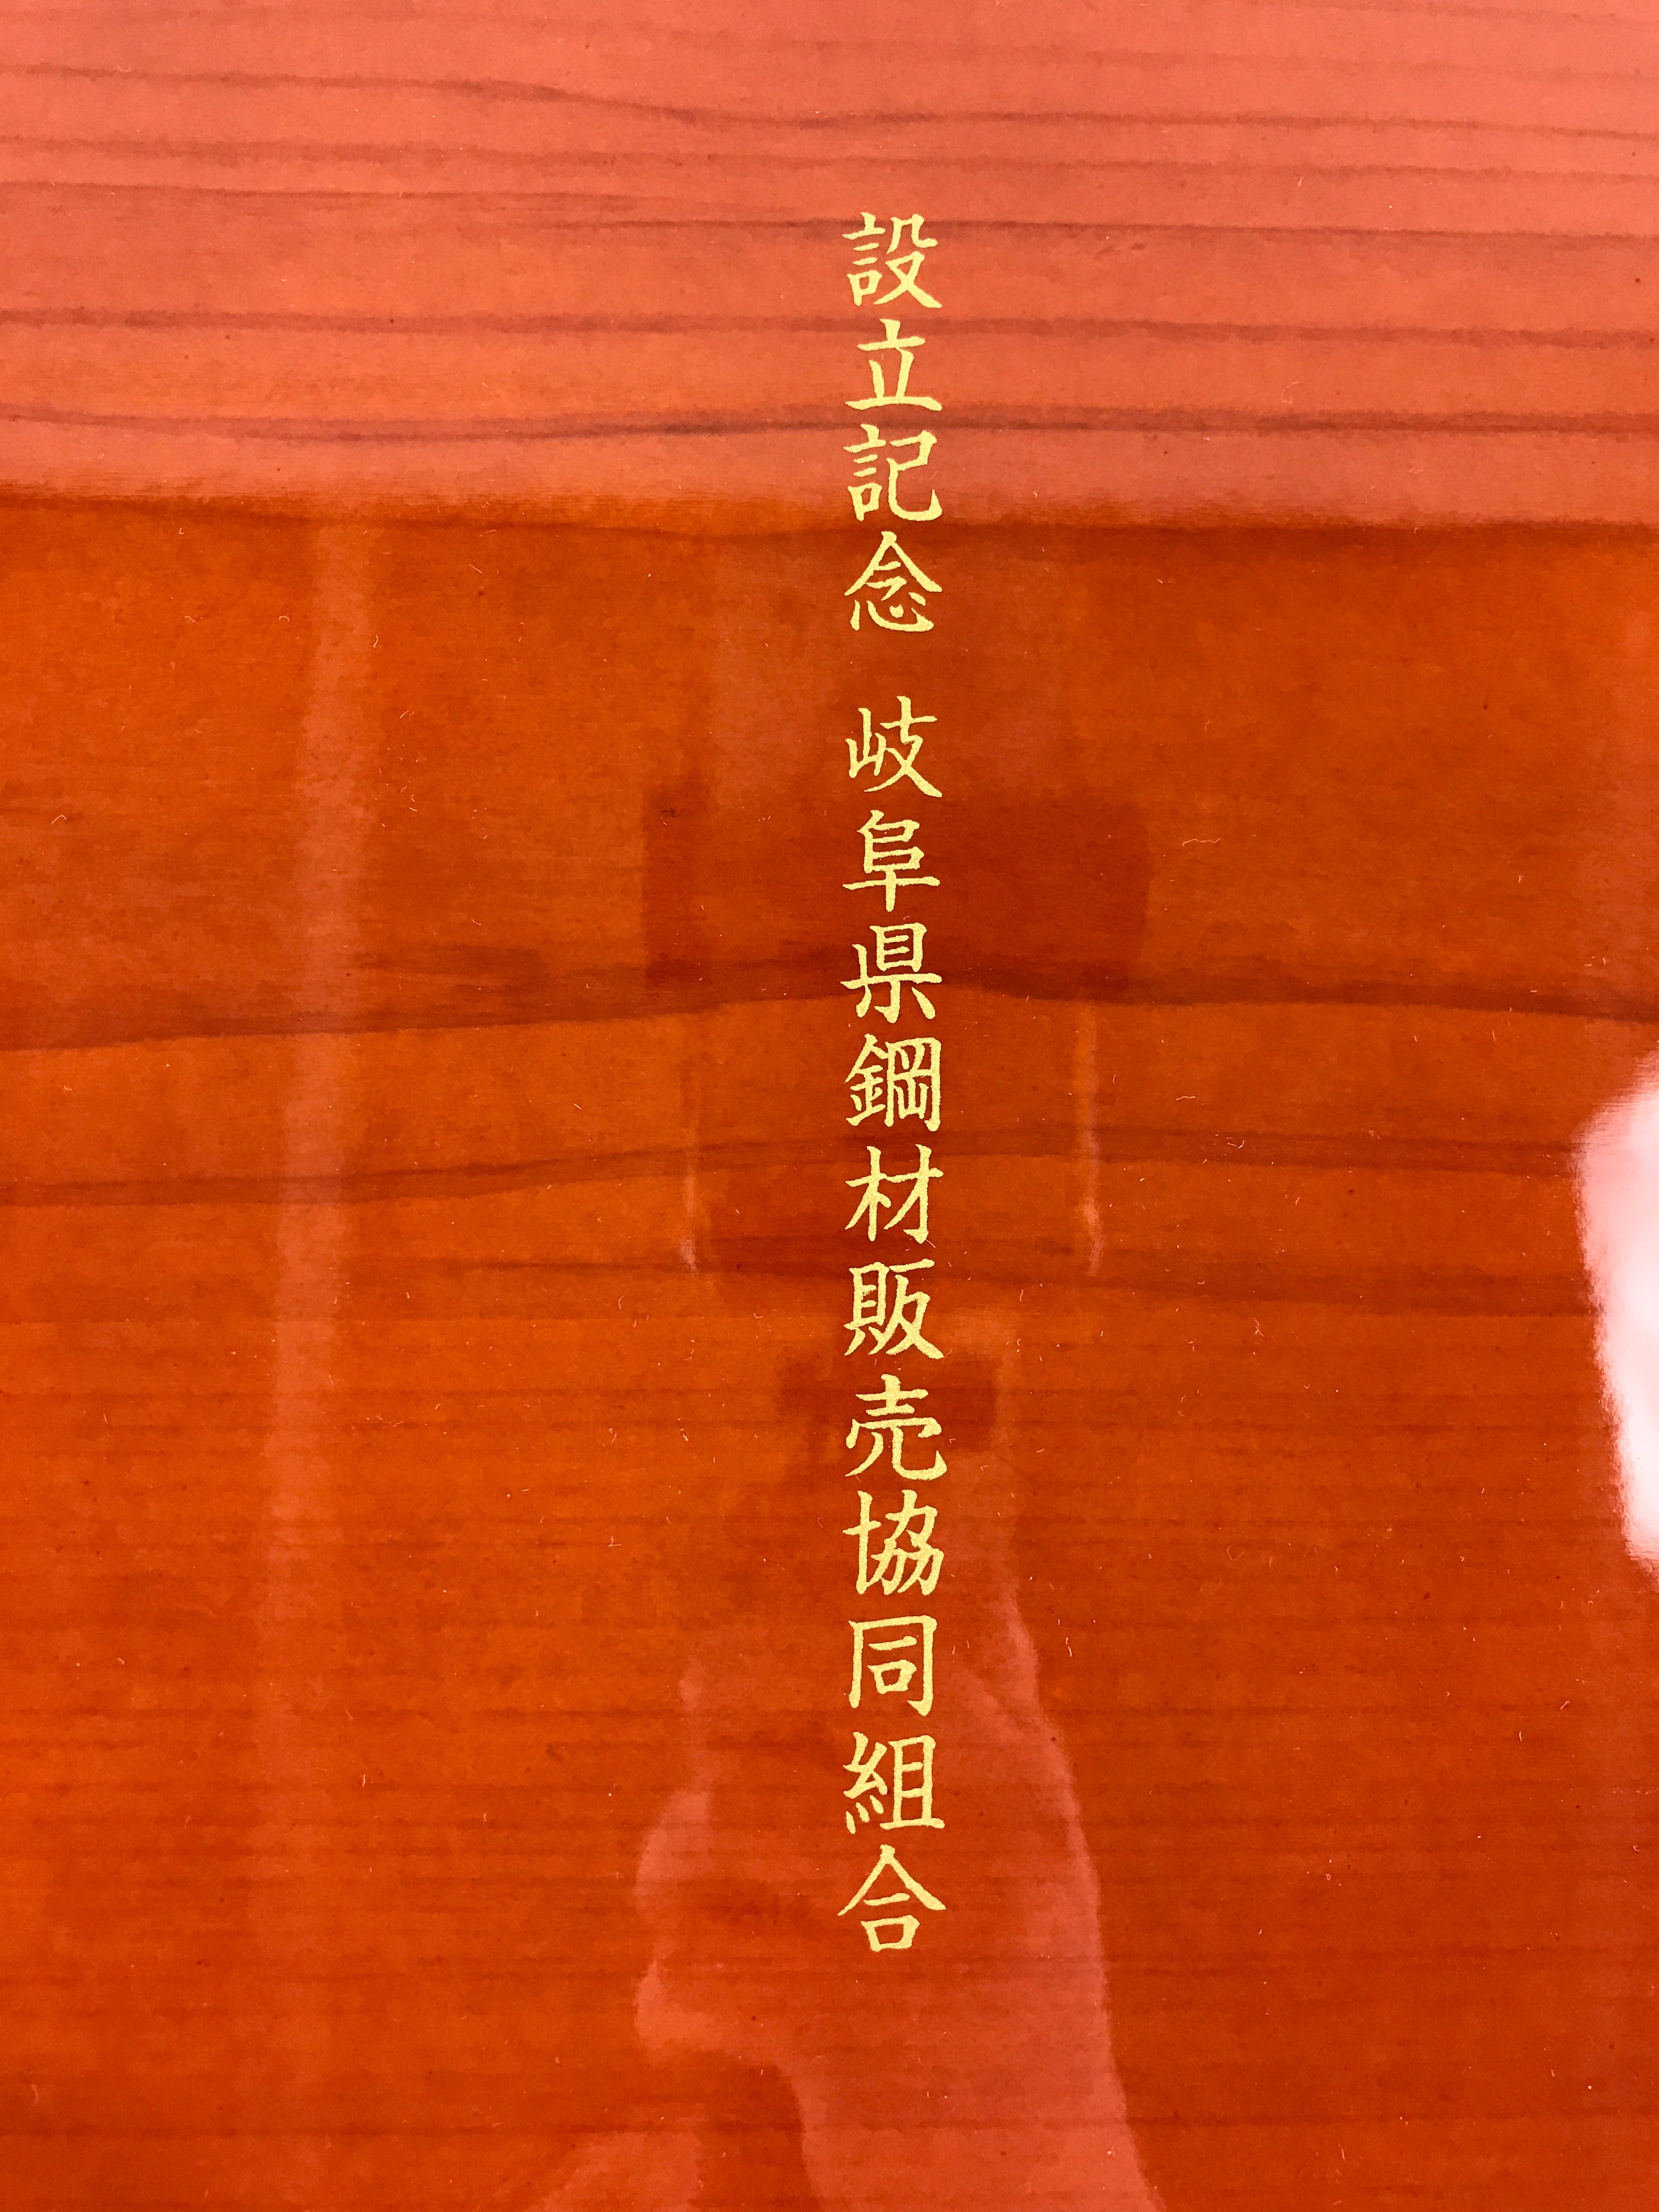 設立記念 岐阜県鋼材販売協同組合